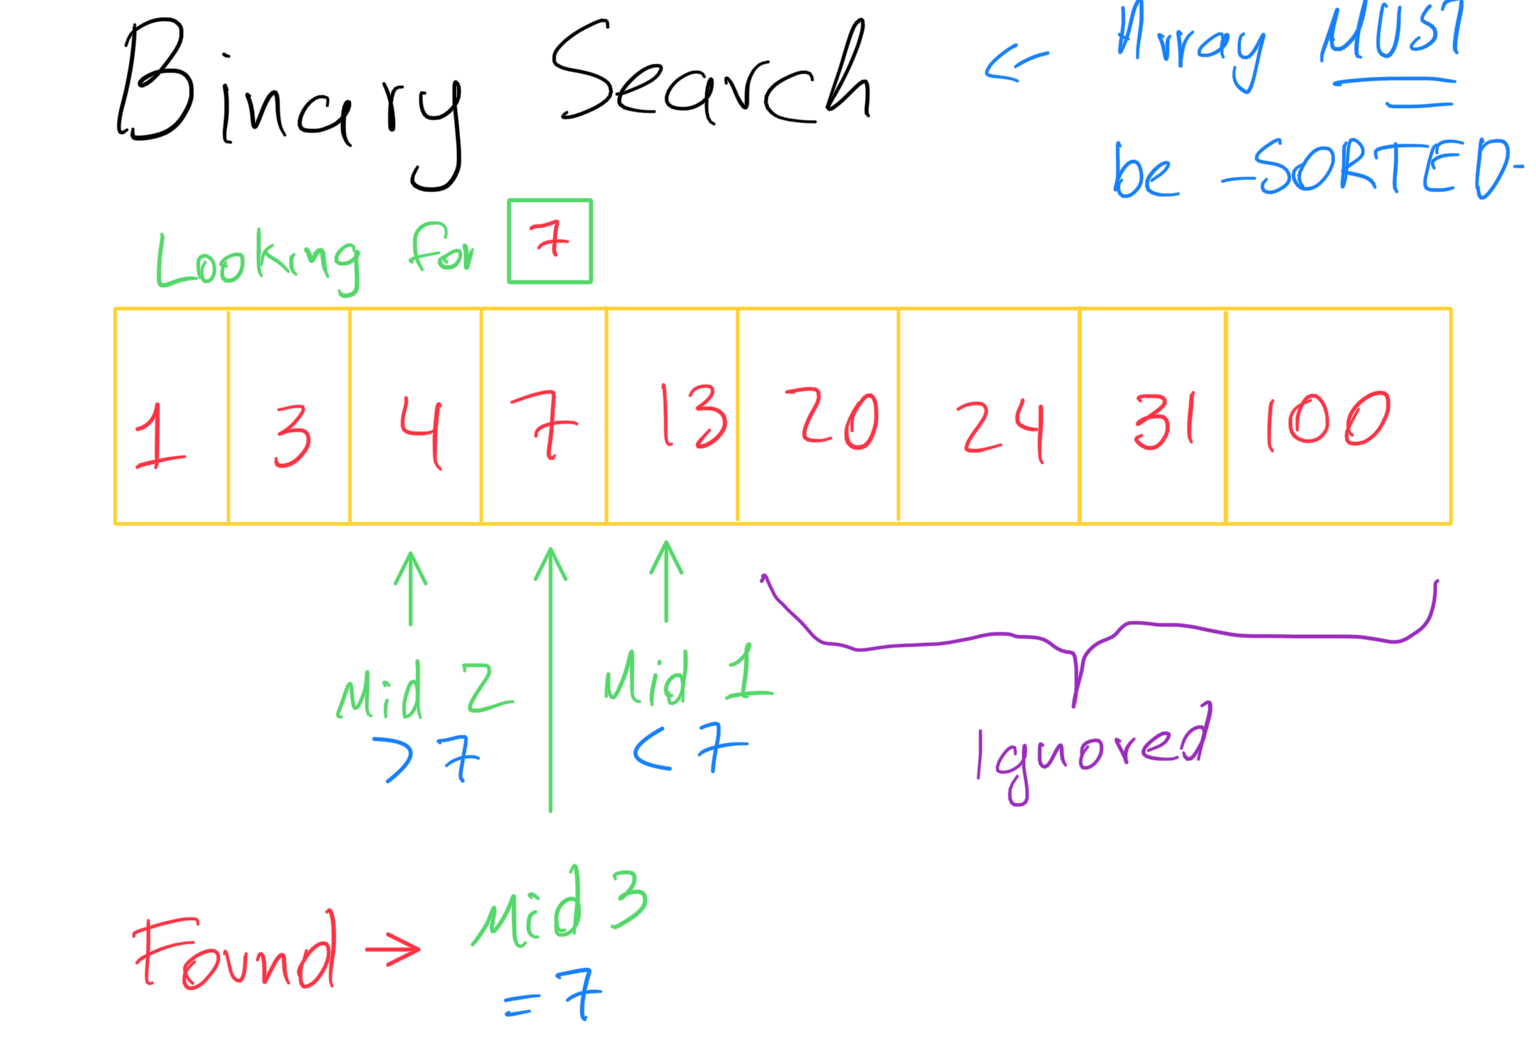 Binary Search
← Array MUST
be -SORTED-
Looking for 7
1 3 4 7 13 20 24 31 100
Mid 2 Mid 1
>7 <7
Ignored
Found → Mid 3
=7